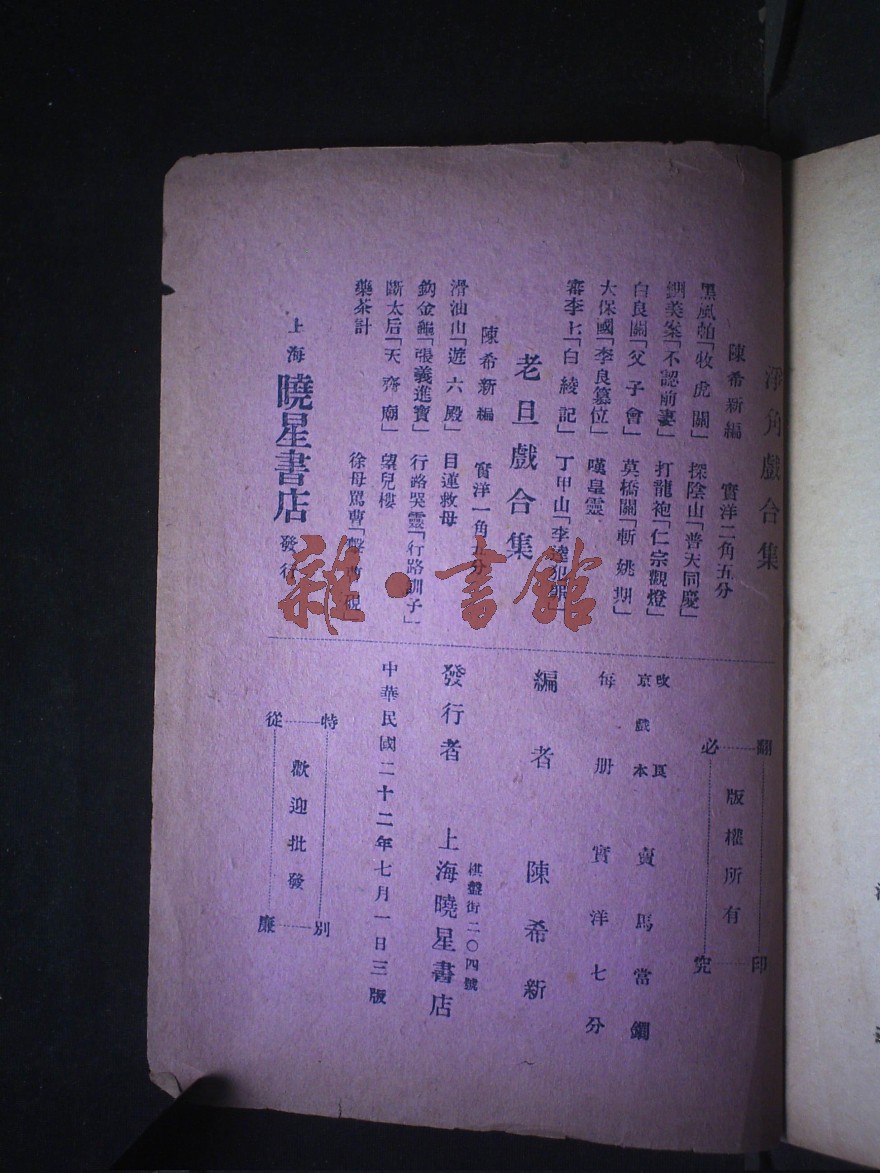 淨角戲合集
陳希新編 實洋二角五分
黑風帕「牧虎關」 探陰山「普天同慶」
鍘美案「不認前妻」 打龍袍「仁宗觀燈」
白良關「父子會」 草橋關「斬姚期」
大保國「李良篡位」 嘆皇靈
審李七「白綾記」 丁甲山「李逵犯罪」
老旦戲合集
陳希新編 實洋一角五分
滑油山「遊六殿」 目蓮救母
釣金龜「張義進寶」 行路哭靈「行路訓子」
斷太后「天齊廟」 望兒樓
藥茶計 徐母罵曹「擊曹硯」
上海曉星書店發行
翻印必究
版權所有
改良京戲本 賣馬當鐧
每册實洋七分
編者 陳希新
棋盤街二〇四號
發行者 上海曉星書店
中華民國二十二年七月一日三版
特別從廉
歡迎批發
雜·書館